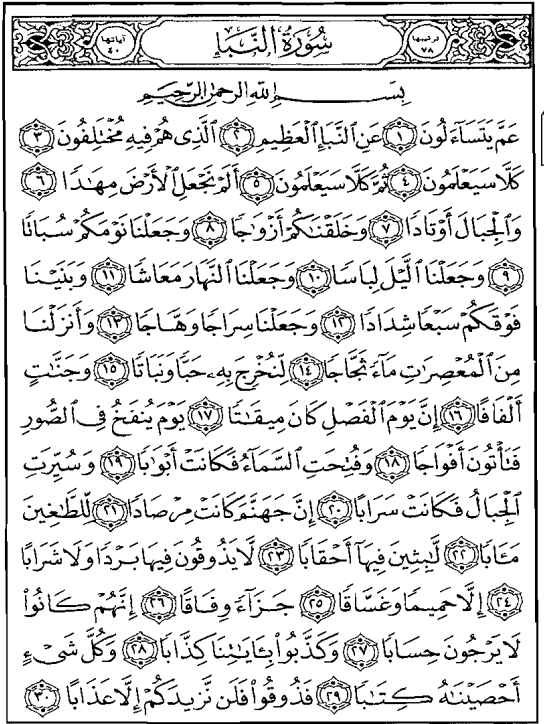 ترتيبها ٧٨ سُورَةُ النَّبَإِ آياتها ٤٠
بِسْمِ اللَّهِ الرَّحْمَٰنِ الرَّحِيمِ
عَمَّ يَتَسَاءَلُونَ ١ عَنِ النَّبَإِ الْعَظِيمِ ٢ الَّذِي هُمْ فِيهِ مُخْتَلِفُونَ ٣
كَلَّا سَيَعْلَمُونَ ٤ ثُمَّ كَلَّا سَيَعْلَمُونَ ٥ أَلَمْ نَجْعَلِ الْأَرْضَ مِهَٰدًا ٦
وَالْجِبَالَ أَوْتَادًا ٧ وَخَلَقْنَٰكُمْ أَزْوَٰجًا ٨ وَجَعَلْنَا نَوْمَكُمْ سُبَاتًا
٩ وَجَعَلْنَا الَّيْلَ لِبَاسًا ١٠ وَجَعَلْنَا النَّهَارَ مَعَاشًا ١١ وَبَنَيْنَا
فَوْقَكُمْ سَبْعًا شِدَادًا ١٢ وَجَعَلْنَا سِرَاجًا وَهَّاجًا ١٣ وَأَنزَلْنَا
مِنَ الْمُعْصِرَٰتِ مَاءً ثَجَّاجًا ١٤ لِّنُخْرِجَ بِهِۦ حَبًّا وَنَبَاتًا ١٥ وَجَنَّٰتٍ
أَلْفَافًا ١٦ إِنَّ يَوْمَ الْفَصْلِ كَانَ مِيقَٰتًا ١٧ يَوْمَ يُنفَخُ فِي الصُّورِ
فَتَأْتُونَ أَفْوَاجًا ١٨ وَفُتِحَتِ السَّمَاءُ فَكَانَتْ أَبْوَٰبًا ١٩ وَسُيِّرَتِ
الْجِبَالُ فَكَانَتْ سَرَابًا ٢٠ إِنَّ جَهَنَّمَ كَانَتْ مِرْصَادًا ٢١ لِّلطَّٰغِينَ
مَـَٔابًا ٢٢ لَّٰبِثِينَ فِيهَا أَحْقَابًا ٢٣ لَّا يَذُوقُونَ فِيهَا بَرْدًا وَلَا شَرَابًا
٢٤ إِلَّا حَمِيمًا وَغَسَّاقًا ٢٥ جَزَاءً وِفَاقًا ٢٦ إِنَّهُمْ كَانُوا۟
لَا يَرْجُونَ حِسَابًا ٢٧ وَكَذَّبُوا۟ بِـَٔايَٰتِنَا كِذَّابًا ٢٨ وَكُلَّ شَيْءٍ
أَحْصَيْنَٰهُ كِتَٰبًا ٢٩ فَذُوقُوا۟ فَلَن نَّزِيدَكُمْ إِلَّا عَذَابًا ٣٠